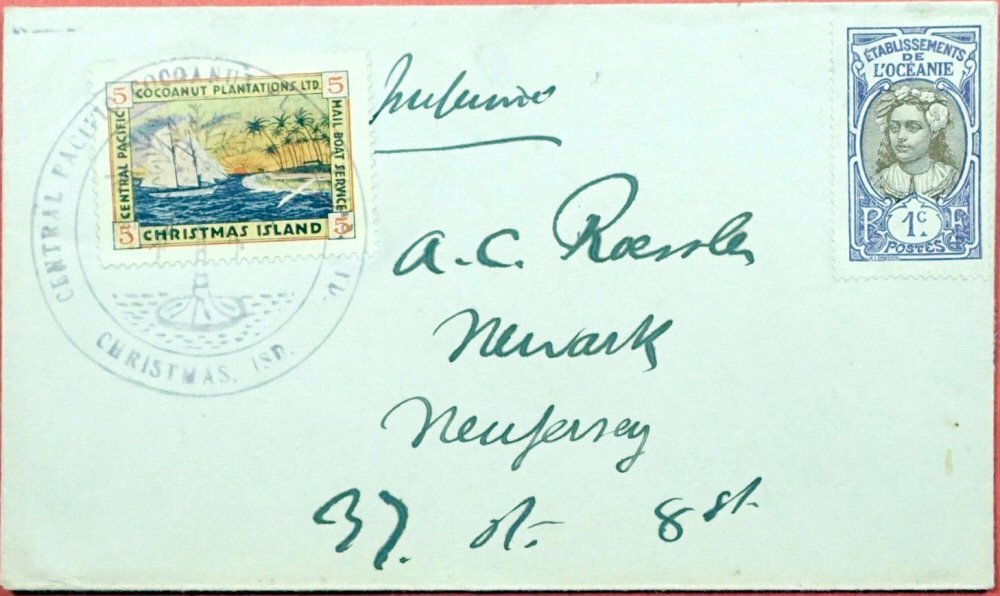 CENTRAL PACIFIC COCOANUT
CHRISTMAS. ISD.
5 COCOANUT PLANTATIONS, LTD. 5
CENTRAL PACIFIC
MAIL BOAT SERVICE
5 CHRISTMAS ISLAND 5
ÉTABLISSEMENTS
DE
L'OCÉANIE
R 1c F
POSTES
A.C. Roessler
Newark
New Jersey
37. St. 8 st.